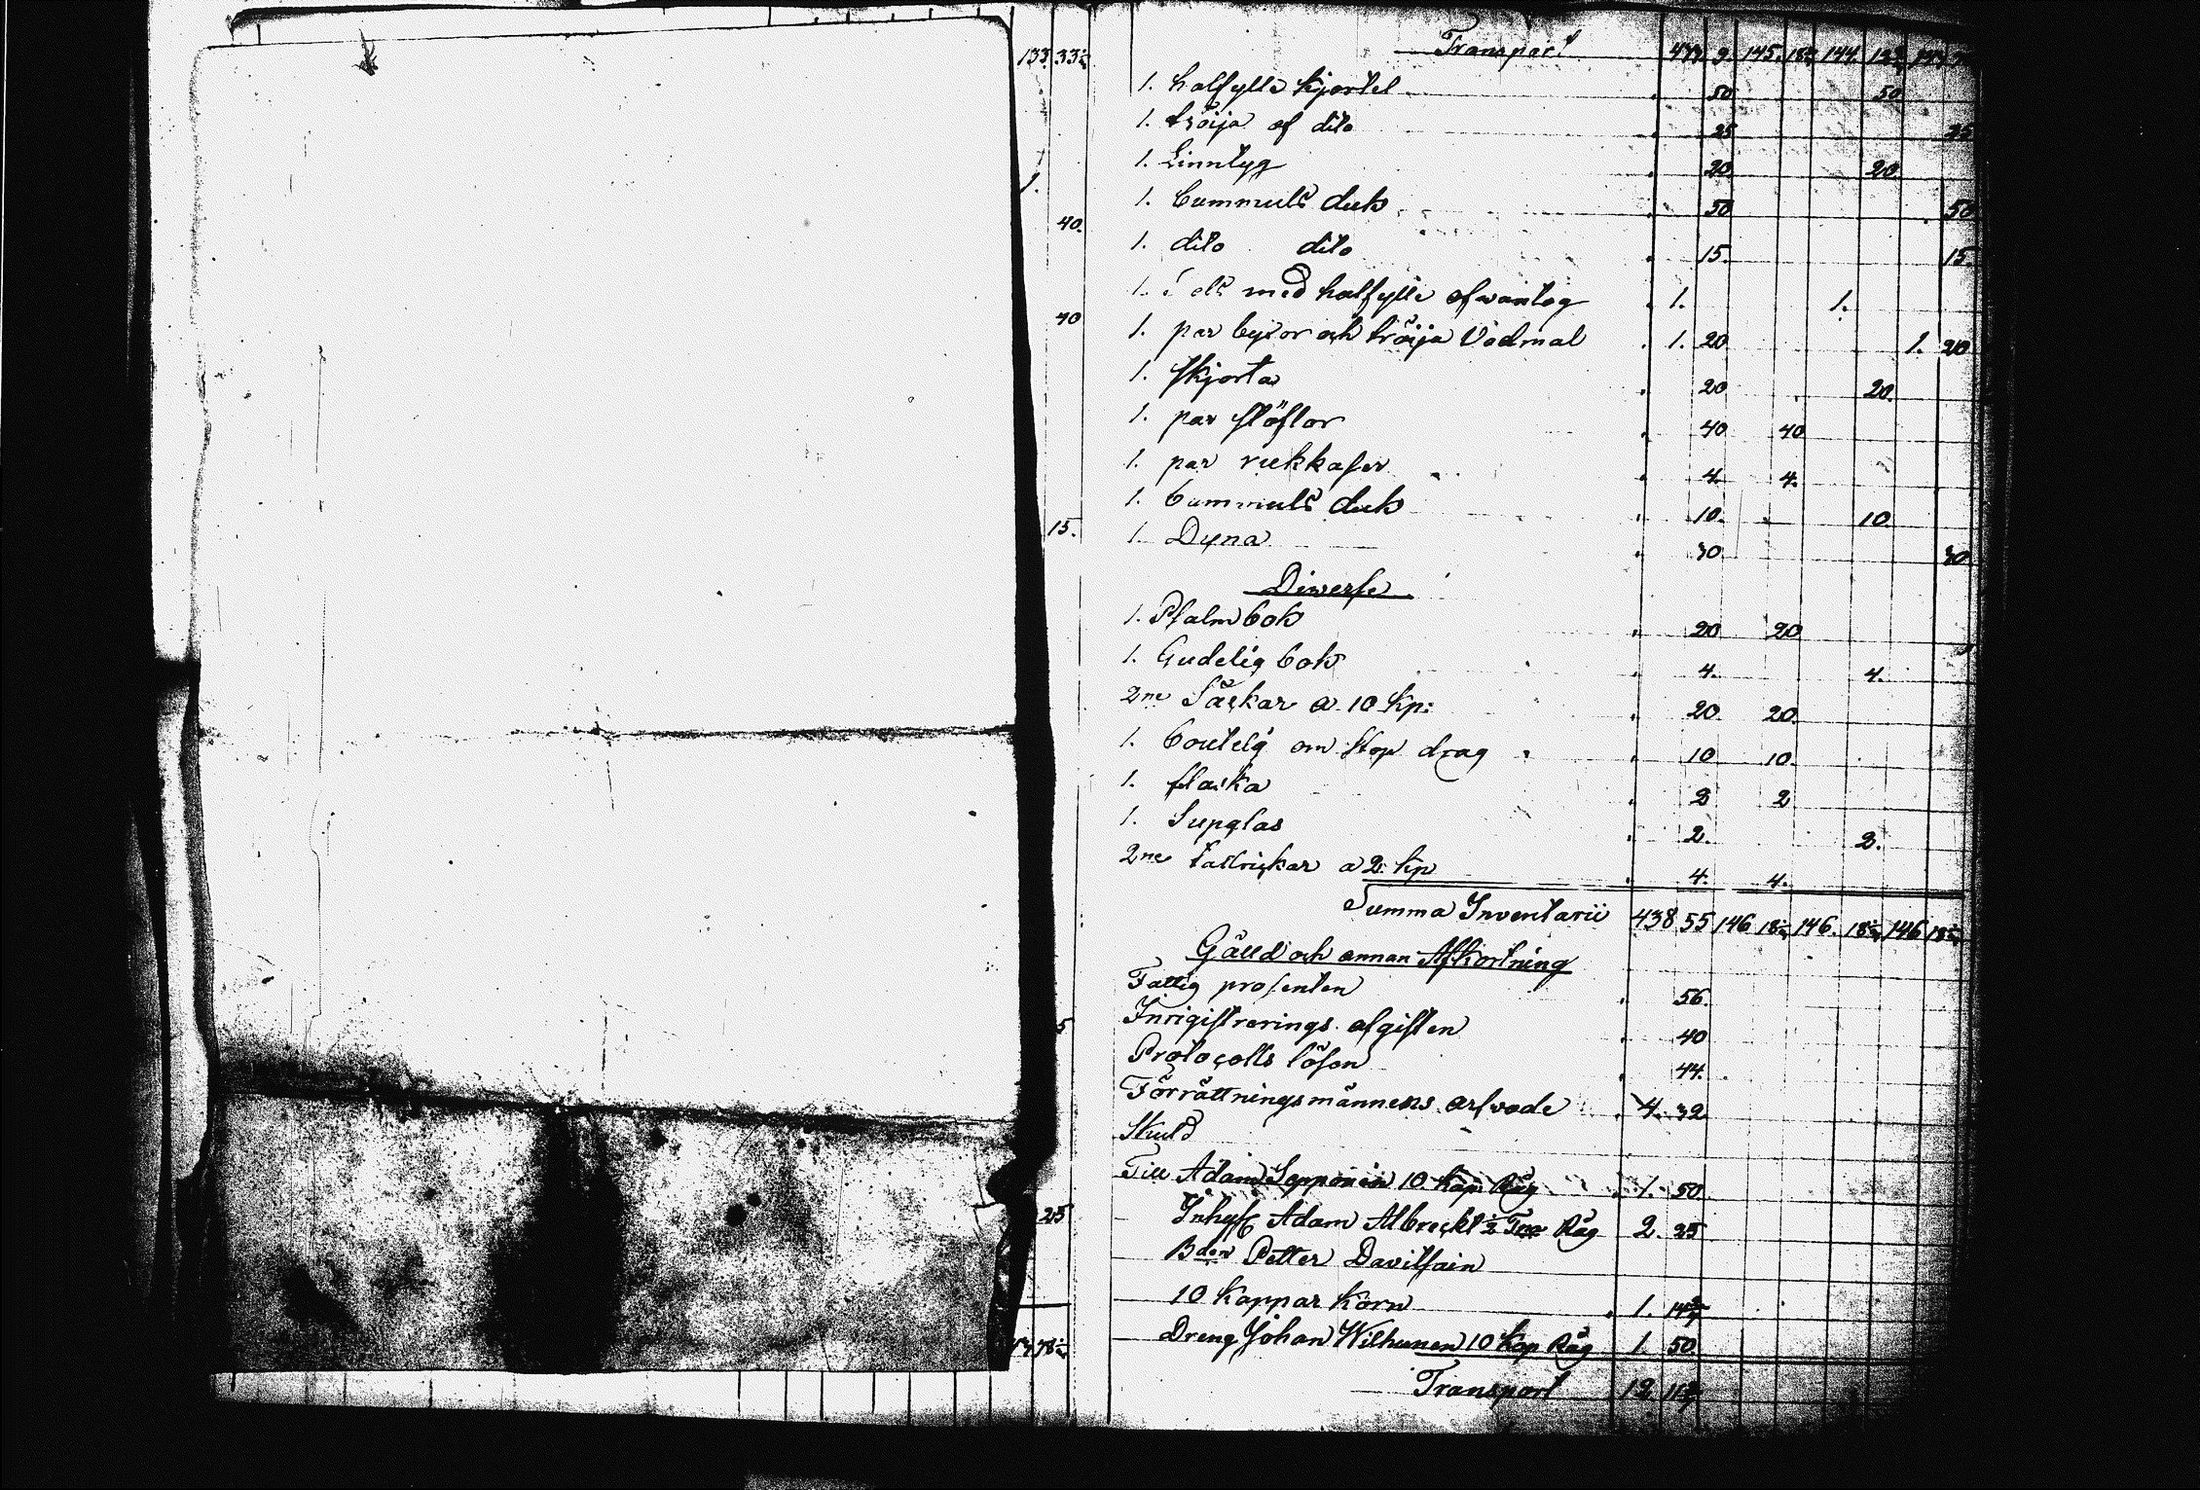 133. 33
1.
40.
40
15.
5
25
Transport 433. 9. 145. 18 144. 13
1. halfylle kjortel 50 50
1. tröija af dito 25 25
1. Linntyg 20 20
1. bummuls duk 50 50
1. dito dito 15. 15.
1. med halfylle ofwantog 1. 1.
1. par byxor och tröija Vadmal 1. 20 1. 20
1. skjorta 20 20.
1. par stöflor 40 40
1. par rukkaser 4. 4.
1. bummuls duk 10. 10
1. Dyna 30 30
Diverse
1. Psalmbok 20 20
1. Gudelig bok 4. 4.
2ne Säckar a 10 Kp: 20 20.
1. boutelg om stop drag 10 10.
1. flaska 2 2
1. Supglas 2. 2.
2ne tallrickar a 2 Kp 4. 4.
Summa Inventarii 438 55 146 18 146. 18 146 18
Gälld och annan Afkortning
Fattig prosenten 56.
Inrigistrerings afgiften 40
Protocolls lösen 44.
Förrättningsmännens arfwode 4. 32
Skuld
Till Adam Sepponen 10 Kap Råg 1. 50
Inhys Adam Albrecht ½ Tna Råg 2. 25
Bden Petter Davitsain
10 Kappar Korn 1. 14
Dreng Johan Wilhunen 10 Kap Råg 1. 50
Transport 12 11